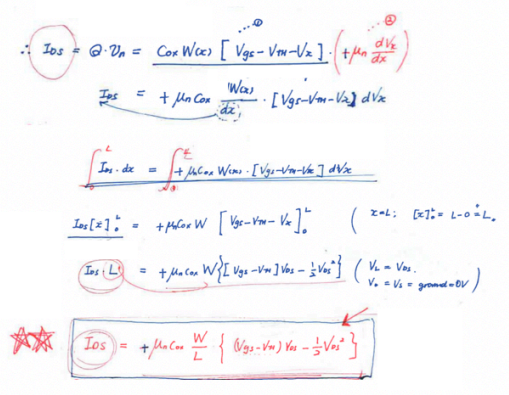 ...①
...②
∴ IDS = Q·Vn = Cox W(x) [ Vgs - VTH - Vx ] · (+μn dVx/dx)
IDS = +μn Cox W(x)/dx · [ Vgs - VTH - Vx ] dVx
∫₀ᴸ IDS · dx = ∫ +μn Cox W(x) · [ Vgs - VTH - Vx ] dVx
IDS [x]₀ᴸ = +μn Cox W [ Vgs - VTH - Vx ]₀ᴸ ( x=L; [x]₀ᴸ = L-0 = L.
IDS · L = +μn Cox W { [ Vgs - VTH ] VDS - 1/2 VDS² } ( VL = VDS.
V0 = VS = ground = 0V )
☆☆ IDS = +μn Cox W/L · { (Vgs - VTH) VDS - 1/2 VDS² }